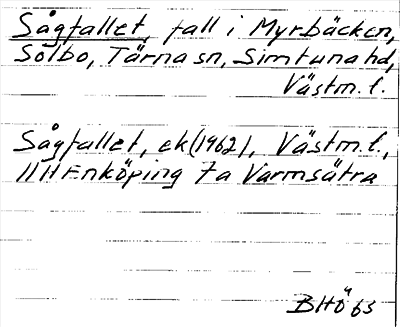 Sågfallet, fall i Myrbäcken,
Solbo, Tärna sn, Simtuna hd,
Västm. l.
Sågfallet, ek (1962), Västm. l.,
11H Enköping 7a Varmsätra
BHÖ 63